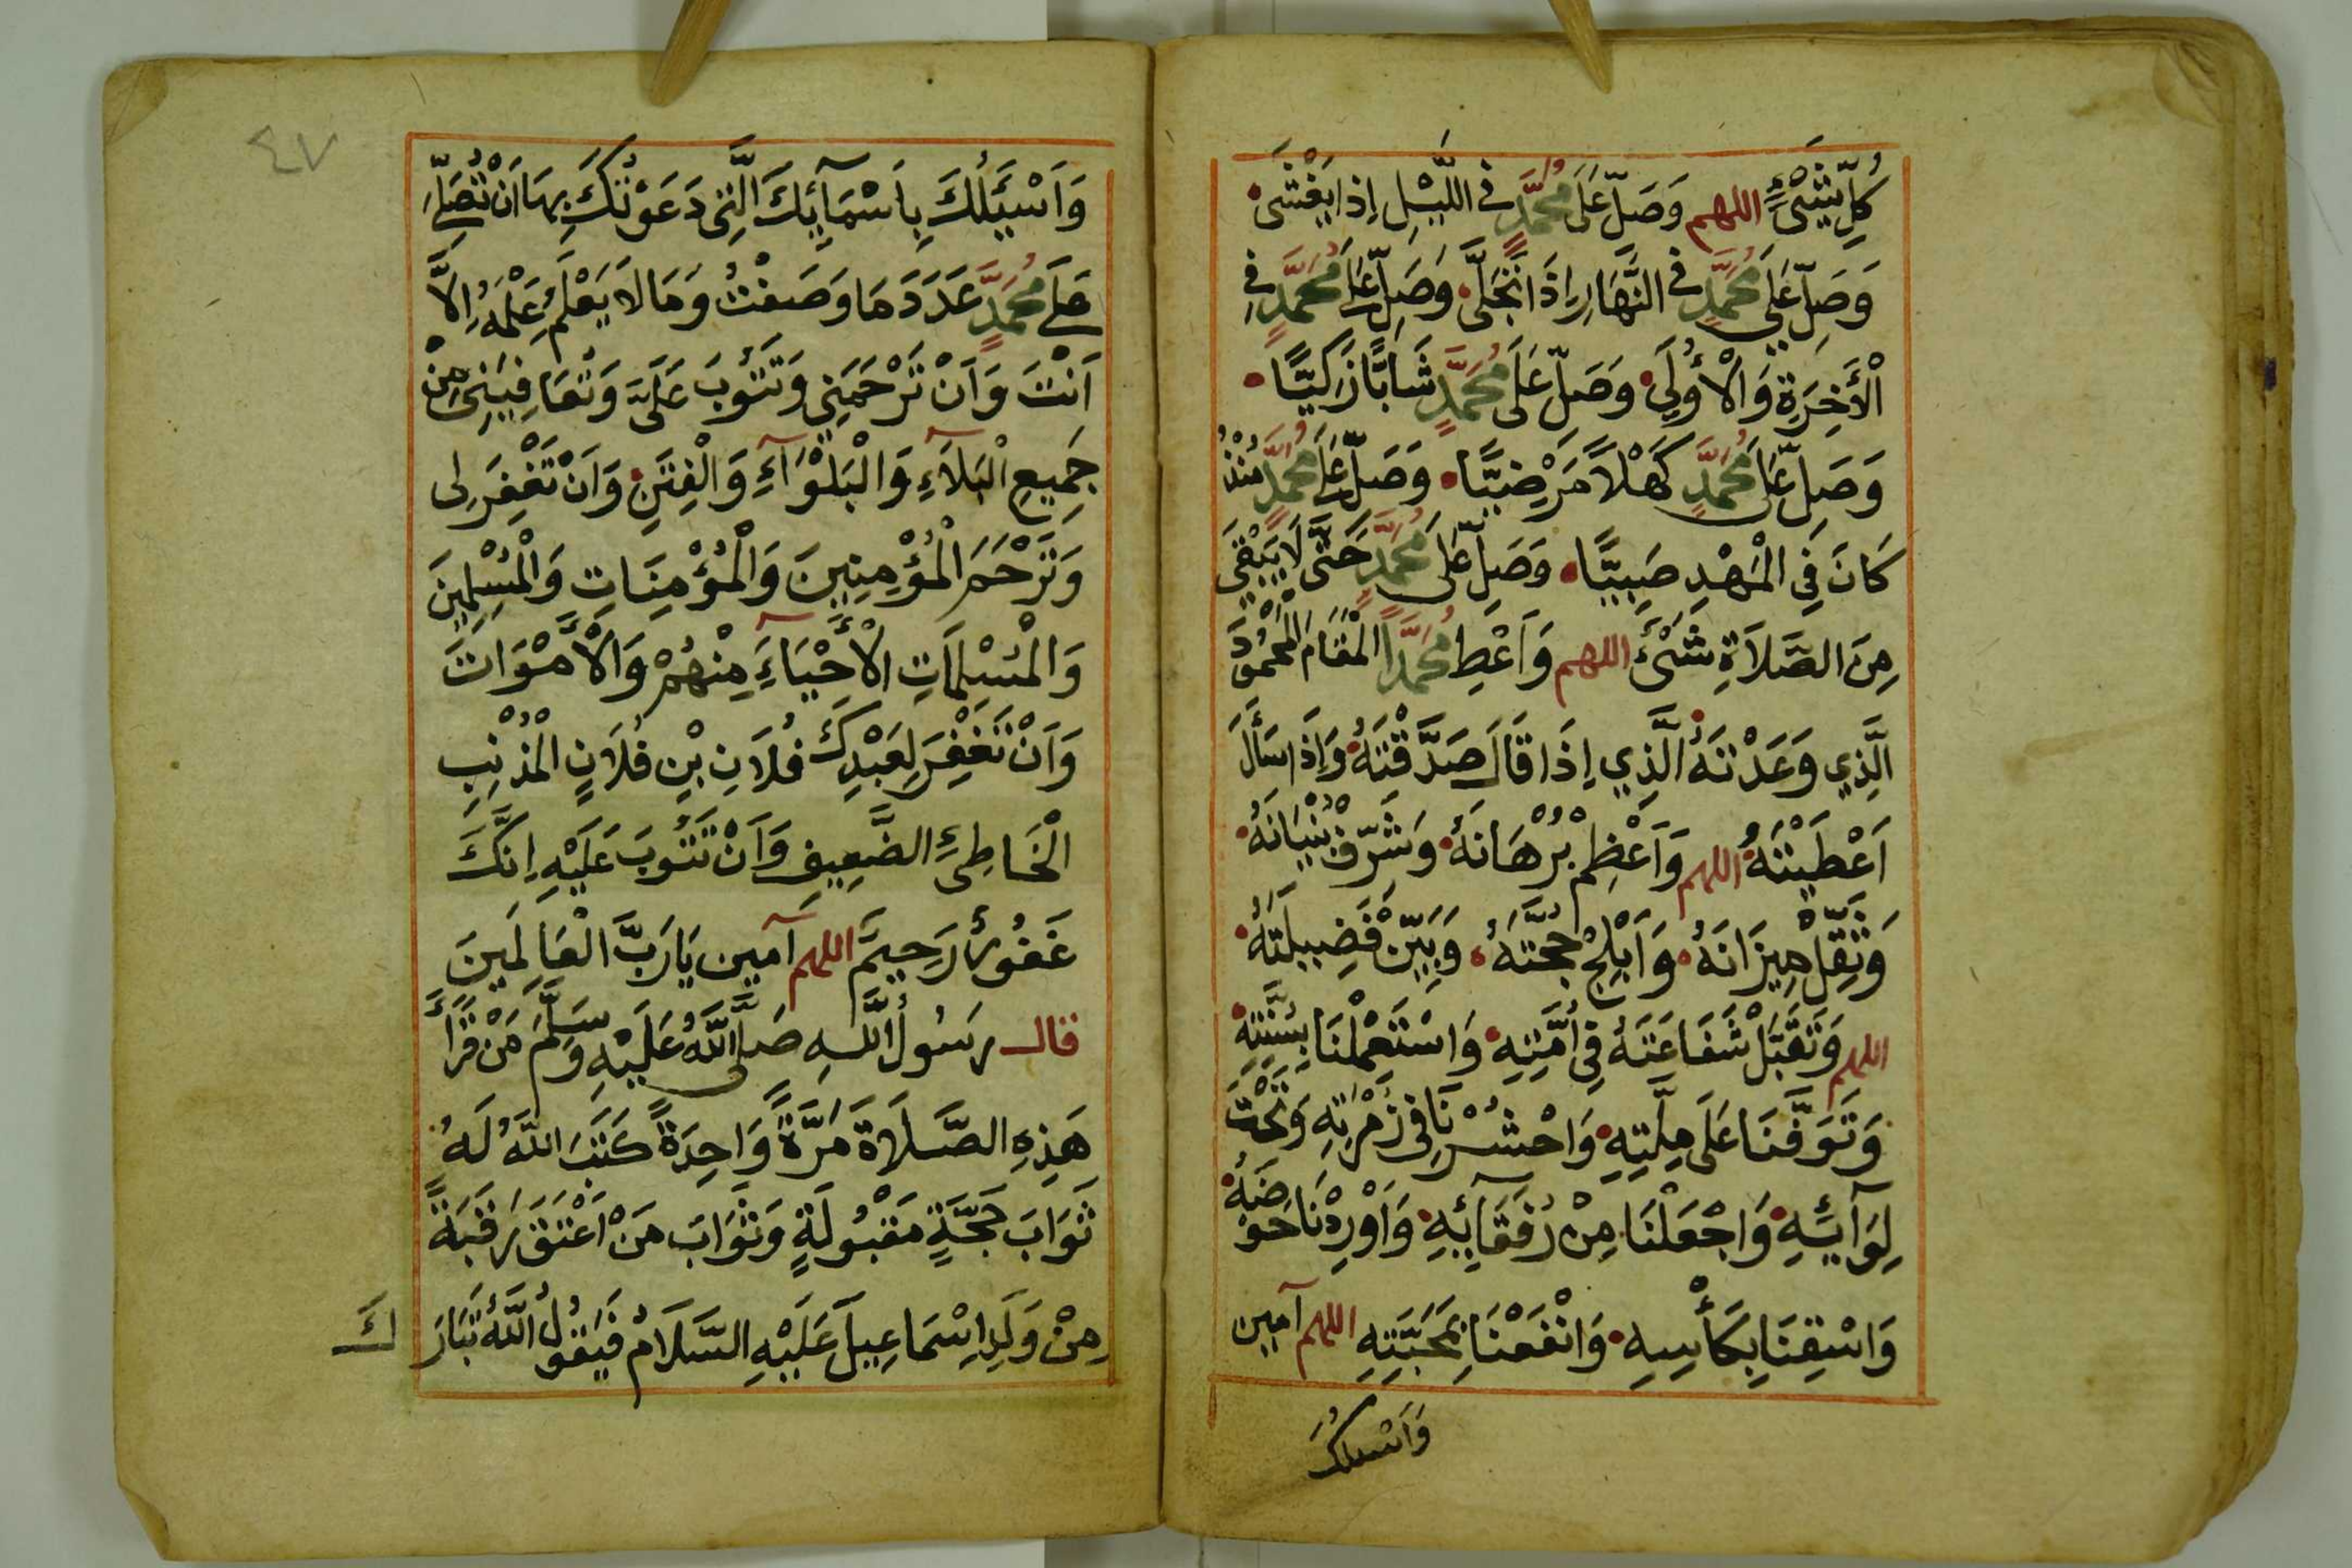 كُلِّ شَيْءٍ اللهم وَصَلِّ عَلَى مُحَمَّدٍ فِي اللَّيْلِ إِذَا يَغْشَى
وَصَلِّ عَلَى مُحَمَّدٍ فِي النَّهَارِ إِذَا تَجَلَّى وَصَلِّ عَلَى مُحَمَّدٍ فِي
الْأَخِرَةِ وَالْأُولَى وَصَلِّ عَلَى مُحَمَّدٍ شَابًّا زَكِيًّا
وَصَلِّ عَلَى مُحَمَّدٍ كَهْلًا مَرْضِيًّا وَصَلِّ عَلَى مُحَمَّدٍ مُنْذُ
كَانَ فِي الْمَهْدِ صَبِيًّا وَصَلِّ عَلَى مُحَمَّدٍ حَتَّى لَا يَبْقَى
مِنَ الصَّلَاةِ شَيْءٌ اللهم وَاَعْطِ مُحَمَّدًا الْمَقَامَ الْمَحْمُودَ
الَّذِي وَعَدْتَهُ الَّذِي إِذَا قَالَ صَدَّقْتَهُ وَإِذَا سَأَلَ
اَعْطَيْتَهُ اللهم وَاَعْظِمْ بُرْهَانَهُ وَشَرِّفْ بُنْيَانَهُ
وَثَقِّلْ مِيزَانَهُ وَاَبْلِجْ حُجَّتَهُ وَبَيِّنْ فَضِيلَتَهُ
اللهم وَتَقَبَّلْ شَفَاعَتَهُ فِي أُمَّتِهِ وَاسْتَعْمِلْنَا بِسُنَّتِهِ
وَتَوَفَّنَا عَلَى مِلَّتِهِ وَاحْشُرْنَا فِي زُمْرَتِهِ وَتَحْتَ
لِوَآئِهِ وَاجْعَلْنَا مِنْ رُفَقَآئِهِ وَاَوْرِدْنَا حَوْضَهُ
وَاسْقِنَا بِكَأْسِهِ وَانْفَعْنَا بِمَحَبَّتِهِ اللهم آمين
وَاَسْئلُكَ
٤٧
وَاَسْئَلُكَ بِاَسْمَآئِكَ الَّتِي دَعَوْتُكَ بِهَا اَنْ تُصَلِّيَ
عَلَى مُحَمَّدٍ عَدَدَ مَا وَصَفْتُ وَمَا لَا يَعْلَمُ عِلْمَهُ اِلَّا
اَنْتَ وَاَنْ تَرْحَمَنِي وَتَتُوبَ عَلَيَّ وَتُعَافِيَنِي مِنْ
جَمِيعِ الْبَلَآءِ وَالْبَلْوَآءِ وَالْفِتَنِ وَاَنْ تَغْفِرَ لِى
وَتَرْحَمَ الْمُؤْمِنِينَ وَالْمُؤْمِنَاتِ وَالْمُسْلِمِينَ
وَالْمُسْلِمَاتِ الْأَحْيَآءِ مِنْهُمْ وَالْأَمْوَاتَ
وَاَنْ تَغْفِرَ لِعَبْدِكَ فُلَانِ بْنِ فُلَانٍ الْمُذْنِبِ
الْخَاطِئِ الضَّعِيفِ وَاَنْ تَتُوبَ عَلَيْهِ اِنَّكَ
غَفُورٌ رَحِيمٌ اللهم آمين يَارَبَّ الْعَالَمِينَ
قال رَسُولُ اللَّهِ صَلَّى اللَّهُ عَلَيْهِ وَسَلَّمَ مَنْ قَرَأَ
هَذِهِ الصَّلَاةَ مَرَّةً وَاحِدَةً كَتَبَ اللهُ لَهُ
ثَوَابَ حَجَّةٍ مَقْبُولَةٍ وَثَوَابَ مَنْ اَعْتَقَ رَقَبَةً
مِنْ وَلَدِ اِسْمَاعِيلَ عَلَيْهِ السَّلَامُ فَيَقُولُ اللَّهُ تَبَارَكَ